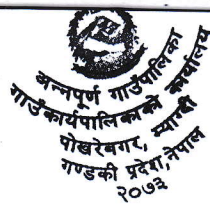 अन्नपूर्ण गाउँपालिका
गाउँकार्यपालिकाको कार्यालय
पोखरेबगर, म्याग्दी
गण्डकी प्रदेश, नेपाल
२०७३